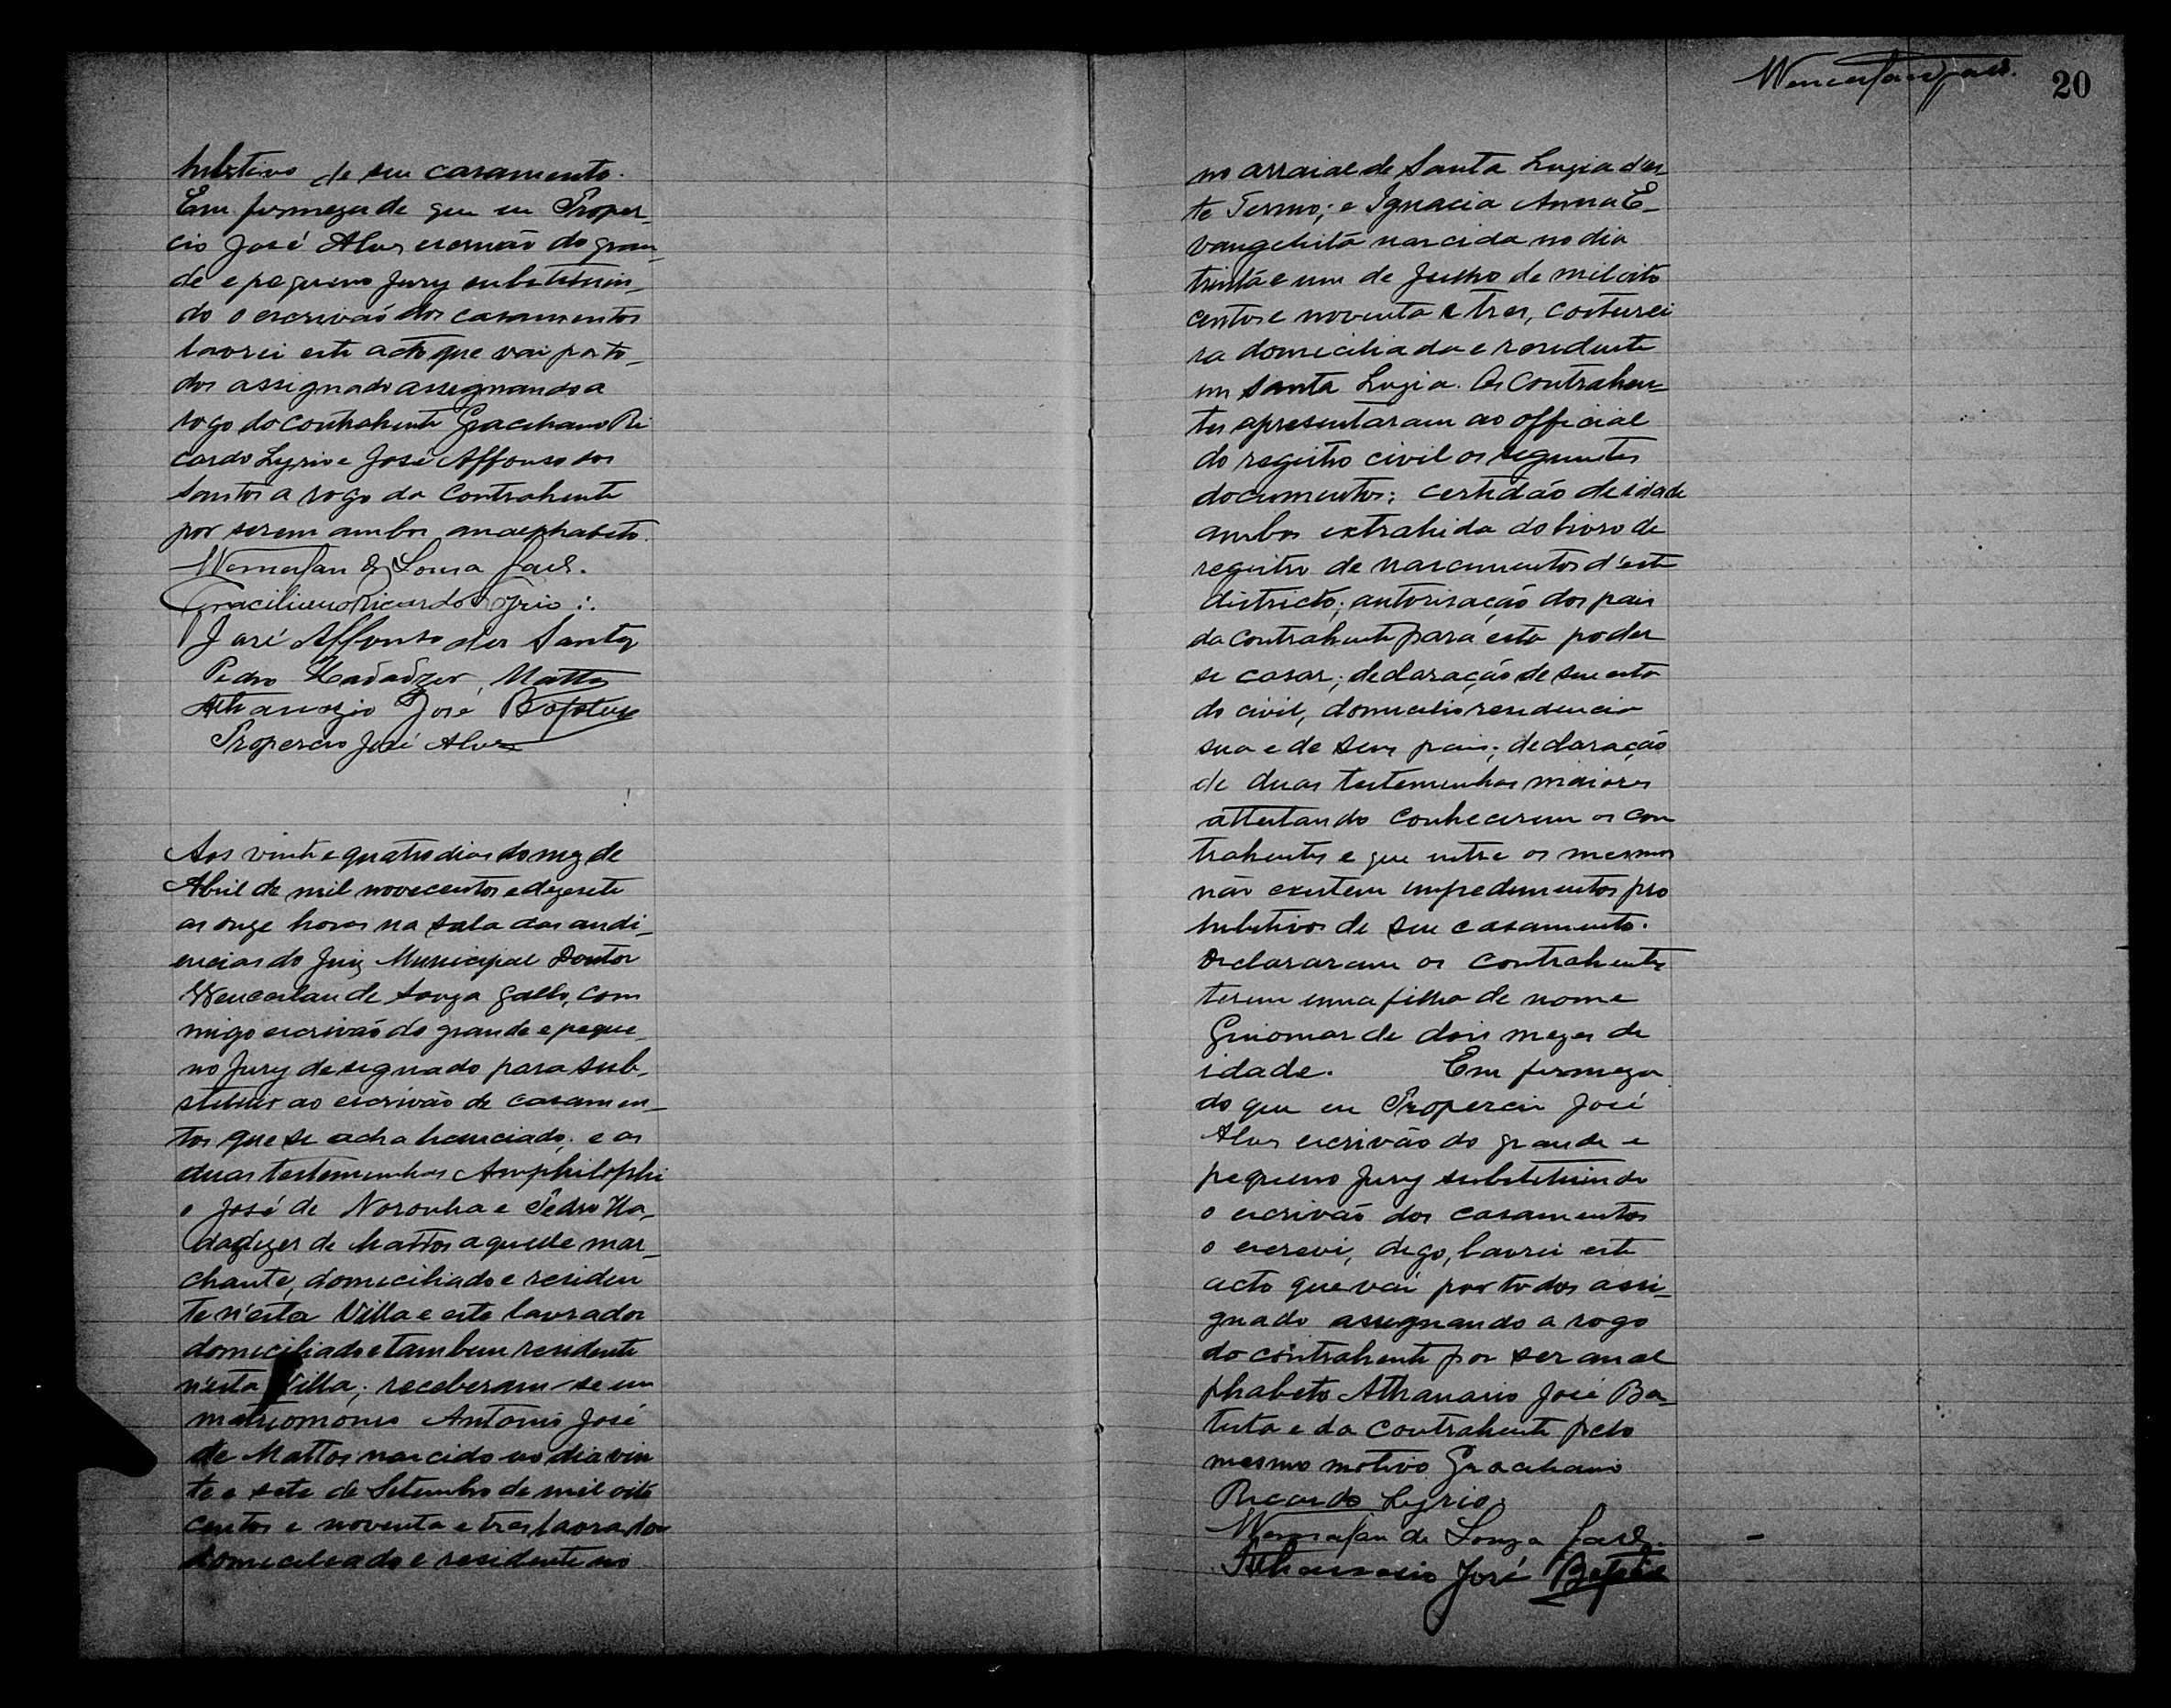 hibitivos de seu casamento.
Em firmeza de que eu Proper-
cio José Alves escrivão do gran-
de e pequeno Jury substituin-
do o escrivão dos casamentos
lavrei este acto que vai por to-
dos assignado assignando a
rogo do contrahente Graciliano Ri
cardo Lyrio e José Affonso dos
Santos a rogo da contrahente
por serem ambos analphabeto.
Wenceslau de Souza Gallo.
Graciliano Ricardo Lyrio
José Affonso dos Santos
Pedro Mattos
Athanazio José Baptista
Propercio José Alves
Aos vinte e quatro dias do mez de
Abril de mil novecentos e dezesete
as onze horas na sala das audi-
encias do Juiz Municipal Doutor
Wenceslau de Souza Gallo, com
migo escrivão do grande e peque-
no Jury designado para sub-
stituir ao escrivão de casamen-
tos que se acha licenciado; e as
duas testemunhas Amphilophi
o José de Noronha e Pedro Ha-
dadezer de Mattos aquelle mar-
chante, domiciliado e residen
te n'esta Villa e este lavrador
domiciliado e tambem residente
n'esta Villa; receberam-se em
matriomonio Antonio José
de Mattos nascido no dia vin
te e sete de Setembro de mil oito
centos e noventa e tres lavrador
domiciliado e residente no
Wenceslau Gallo.
20
no arraial de Santa Luzia d'es
te Termo; e Ignacia Anna E-
vangelista nascida no dia
trinta e um de Julho de mil oito
centos e noventa e tres, costurei
ra domiciliada e residente
em Santa Luzia. Os contrahen-
tes apresentaram ao official
do registro civil os seguintes
documentos: certidão de idade
ambos extrahida do livro de
registro de nascimentos d'este
districto; autorisação dos pais
da contrahente para esta poder
se casar; declaração de seu esta
do civil, domicilio residencia
sua e de seus pais; declaração
de duas testemunhas maiores
attestando conhecerem os con
trahentes e que entre os mesmos
não existem impedimentos pro
hibitivos de seu casamento.
Declararam os contrahentes
terem uma filha de nome
Guiomar de dois mezes de
idade. Em firmeza
do que eu Propercio José
Alves escrivão do grande e
pequeno Jury substituindo
o escrivão dos casamentos
o escrevi, digo, lavrei este
acto que vai por todos assi-
gnado assignando a rogo
do contrahente por ser anal
phabeto Athanasio José Ba-
tista e da contrahente pelo
mesmo motivo Graciliano
Ricardo Lyrio.
Wenceslau de Souza Gallo.
Athanasio José Baptista